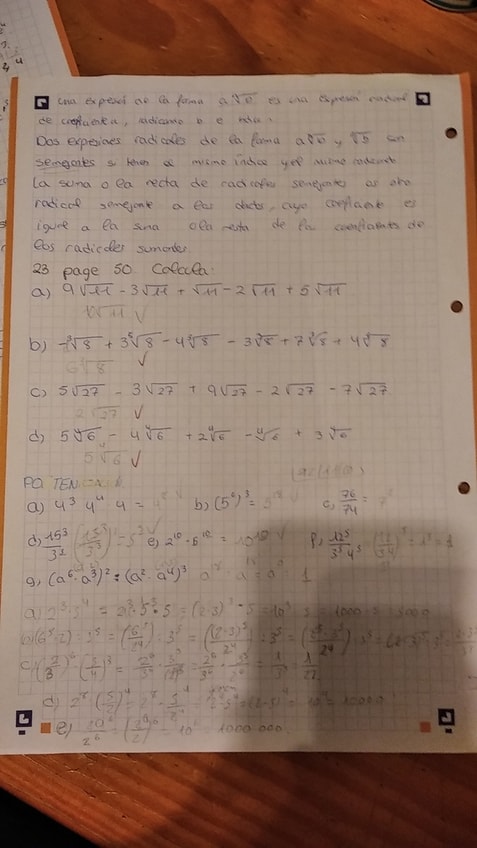 una expresión de la forma a ⁿ√b es una expresión radical
de coeficiente, radicando b e índice
Dos expresiones radicales de la forma a ⁿ√b y son
semejantes si tienen el mismo índice y el mismo radicando
La suma o la resta de radicales semejantes es otro
radical semejante a los dados, cuyo coeficiente es
igual a la suma o la resta de los coeficientes de
los radicales sumandos.
23 page 50. Calcula:
a) 9√11 - 3√11 + √11 - 2√11 + 5√11
10√11 ✓
b) -⁵√8 + 3⁵√8 - 4⁵√8 - 3⁵√8 + 7⁵√8 + 4⁵√8
6⁵√8 ✓
c) 5√27 - 3√27 + 9√27 - 2√27 - 7√27
2√27 ✓
d) 5⁴√6 - 4⁴√6 + 2⁴√6 - ⁴√6 + 3⁴√6
5⁴√6 ✓
POTENCIAS
a) 4³ 4⁴ 4 = 4⁸ ✓ b) (5⁶)³ = 5¹⁸ ✓ c)
d) 15³/3³ (15/3)³ = 5³ ✓ e) 2¹⁰ · 5¹⁰ = 10¹⁰ ✓ f) 12⁵/3⁵4⁵ = 1⁵ = 1
g) (a⁶ · a³)² : (a² · a⁴)³ a¹⁸ : a¹⁸ = a⁰ = 1
a) 2³ · 5⁴ = 2³ · 5³ · 5 = (2·5)³ · 5 = 10³ · 5 = 1000 · 5 = 5000
d) 2⁸ · (5/2)⁴ = 2⁸ · 5⁴/2⁴ = 2⁴ · 5⁴ = (2·5)⁴ = 10⁴ = 10000
e) 20⁶/2⁶ = (20/2)⁶ = 10⁶ = 1000000